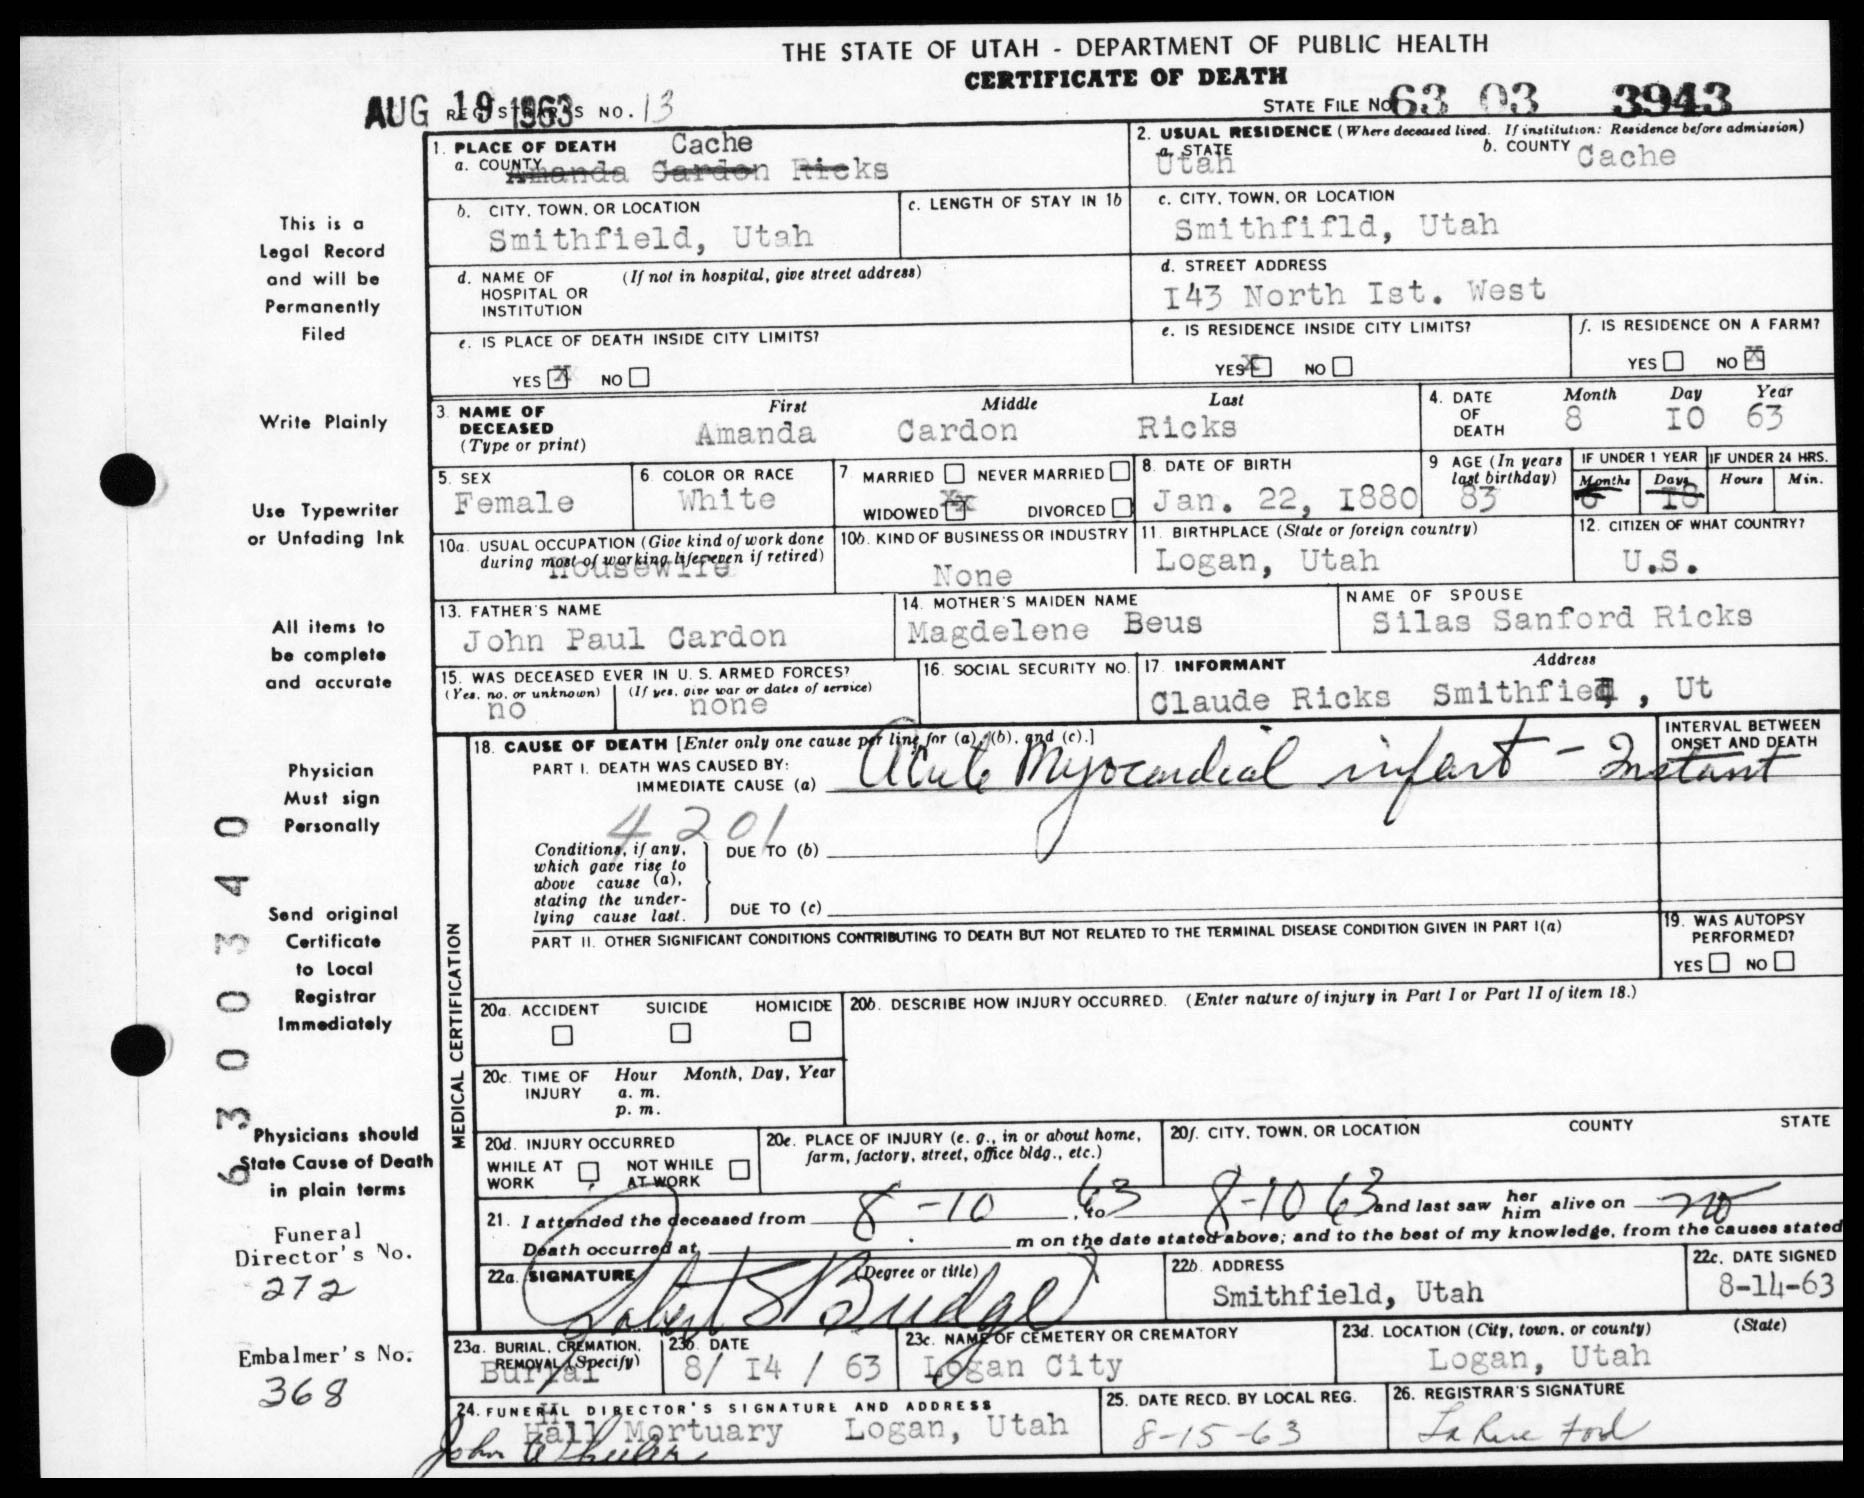 THE STATE OF UTAH - DEPARTMENT OF PUBLIC HEALTH
CERTIFICATE OF DEATH
AUG 19 1963 REGISTRAR'S NO. 13 STATE FILE NO. 63 03 3943
1. PLACE OF DEATH Cache
a. COUNTY Amanda Cardon Ricks
2. USUAL RESIDENCE (Where deceased lived. If institution: Residence before admission)
a. STATE Utah b. COUNTY Cache
b. CITY, TOWN, OR LOCATION Smithfield, Utah
c. LENGTH OF STAY IN 1b
c. CITY, TOWN, OR LOCATION Smithfifld, Utah
d. NAME OF HOSPITAL OR INSTITUTION (If not in hospital, give street address)
d. STREET ADDRESS I43 North Ist. West
e. IS PLACE OF DEATH INSIDE CITY LIMITS? YES X NO
e. IS RESIDENCE INSIDE CITY LIMITS? YES X NO
f. IS RESIDENCE ON A FARM? YES NO X
3. NAME OF DECEASED (Type or print) First Middle Last
Amanda Cardon Ricks
4. DATE OF DEATH Month Day Year
8 I0 63
5. SEX Female
6. COLOR OR RACE White
7 MARRIED NEVER MARRIED WIDOWED Xx DIVORCED
8. DATE OF BIRTH Jan. 22, I880
9 AGE (In years last birthday) 83
IF UNDER 1 YEAR Months 6 Days I8
IF UNDER 24 HRS. Hours Min.
10a. USUAL OCCUPATION (Give kind of work done during most of working life, even if retired) Housewife
10b. KIND OF BUSINESS OR INDUSTRY None
11. BIRTHPLACE (State or foreign country) Logan, Utah
12. CITIZEN OF WHAT COUNTRY? U.S.
13. FATHER'S NAME John Paul Cardon
14. MOTHER'S MAIDEN NAME Magdelene Beus
NAME OF SPOUSE Silas Sanford Ricks
15. WAS DECEASED EVER IN U. S. ARMED FORCES?
(Yes, no, or unknown) no (If yes, give war or dates of service) none
16. SOCIAL SECURITY NO.
17. INFORMANT Address
Claude Ricks Smithfied, Ut
MEDICAL CERTIFICATION
18. CAUSE OF DEATH [Enter only one cause per line for (a), (b), and (c).]
INTERVAL BETWEEN ONSET AND DEATH
PART I. DEATH WAS CAUSED BY:
IMMEDIATE CAUSE (a) Acute Myocardial infart - Instant
4201
Conditions, if any, which gave rise to above cause (a), stating the underlying cause last.
DUE TO (b)
DUE TO (c)
PART II. OTHER SIGNIFICANT CONDITIONS CONTRIBUTING TO DEATH BUT NOT RELATED TO THE TERMINAL DISEASE CONDITION GIVEN IN PART I(a)
19. WAS AUTOPSY PERFORMED? YES NO
20a. ACCIDENT SUICIDE HOMICIDE
20b. DESCRIBE HOW INJURY OCCURRED. (Enter nature of injury in Part I or Part II of item 18.)
20c. TIME OF INJURY Hour Month, Day, Year
a. m.
p. m.
20d. INJURY OCCURRED
WHILE AT WORK NOT WHILE AT WORK
20e. PLACE OF INJURY (e. g., in or about home, farm, factory, street, office bldg., etc.)
20f. CITY, TOWN, OR LOCATION COUNTY STATE
21. I attended the deceased from 8-10 63, to 8-10 63 and last saw her him alive on no
Death occurred at m on the date stated above; and to the best of my knowledge, from the causes stated
22a. SIGNATURE (Degree or title) Robert S Budge
22b. ADDRESS Smithfield, Utah
22c. DATE SIGNED 8-14-63
23a. BURIAL, CREMATION, REMOVAL (Specify) Burial
23b. DATE 8/ I4 / 63
23c. NAME OF CEMETERY OR CREMATORY Logan City
23d. LOCATION (City, town, or county) (State) Logan, Utah
24. FUNERAL DIRECTOR'S SIGNATURE AND ADDRESS
Hall Mortuary Logan, Utah
John W Wheeler
25. DATE RECD. BY LOCAL REG. 8-15-63
26. REGISTRAR'S SIGNATURE La Rue Ford
This is a
Legal Record
and will be
Permanently
Filed
Write Plainly
Use Typewriter
or Unfading Ink
All items to
be complete
and accurate
Physician
Must sign
Personally
Send original
Certificate
to Local
Registrar
Immediately
Physicians should
State Cause of Death
in plain terms
Funeral
Director's No.
272
Embalmer's No.
368
63003340